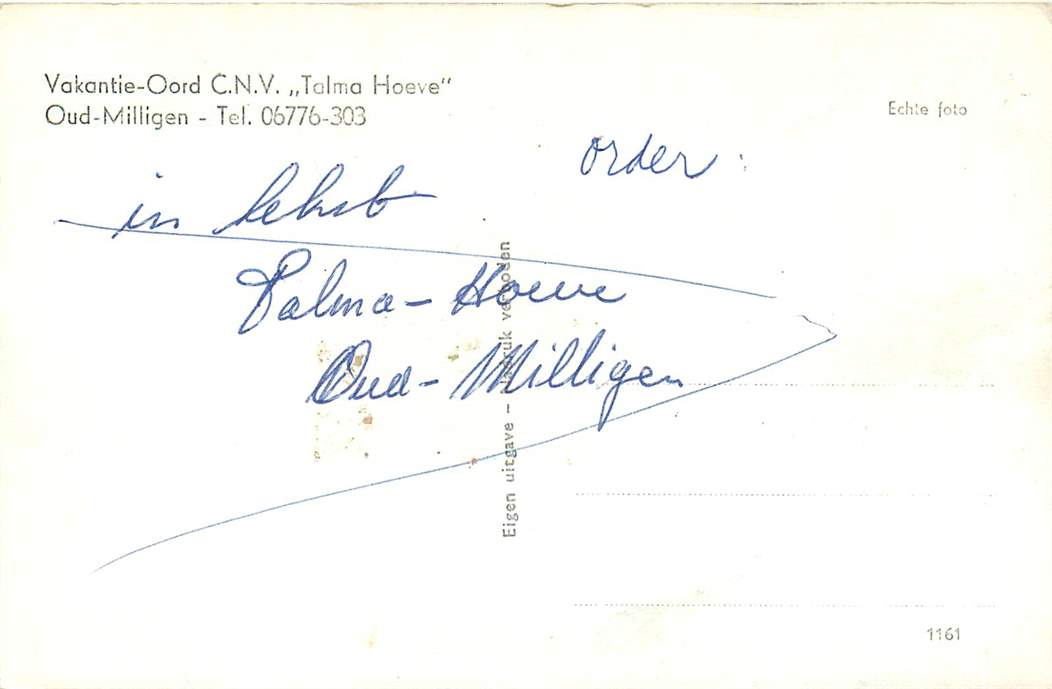 Vakantie-Oord C.N.V. „Talma Hoeve"
Oud-Milligen - Tel. 06776-303
Echte foto
order:
in
Talma-Hoeve
Oud-Milligen
Eigen uitgave - Nadruk verboden
1161